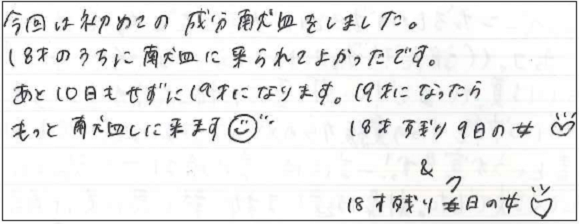 今回は初めての 成分献血をしました。
18才のうちに献血に来られてよかったです。
あと10日もせずに19才になります。19才になったら
もっと 献血しに来ます
18才残り9日の女
&
18才残り 日の女